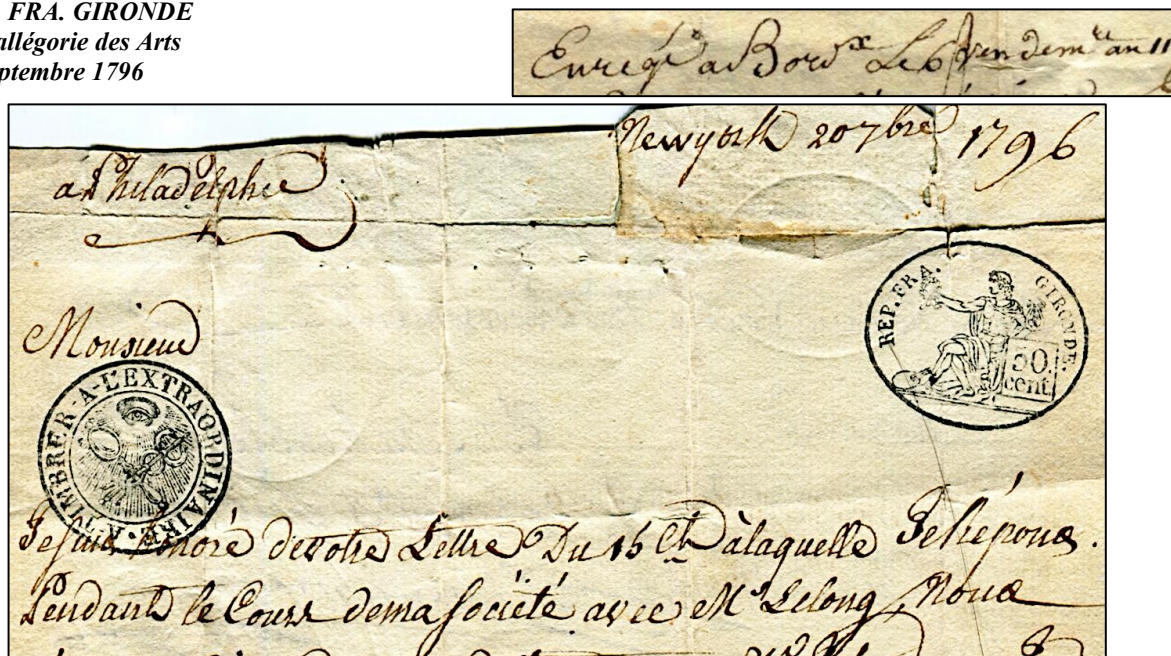 FRA. GIRONDE
allégorie des Arts
ptembre 1796
Enregé a Bordx Le 6 vendemre an 11
Newyork 20 7bre 1796
a Philadelphie
REP. FRA. GIRONDE.
50.
cent.
Monsieur
A-TIMBRER-A-L'EXTRAORDINAIRE
Je suis honoré de votre Lettre Du 15 Ct à laquelle Je Réponds.
Pendant le Cours de ma société avec Mr Lelong Nous